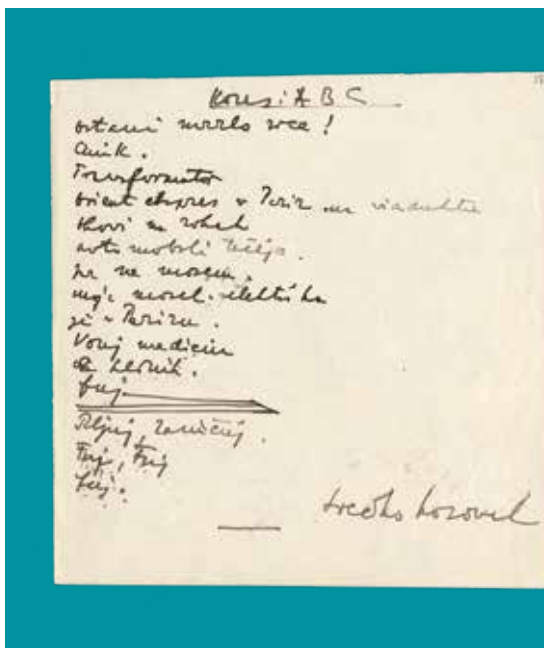 Kons: A B C
ostani mrzlo srce!
Cinik.
Transformator
orient ekspres v Pariz na viaduktu
okovi na rokah
avtomobili tečejo.
jaz ne morem.
moja misel - elektrika
je v Parizu.
Vonj medicin
iz klinik.
fuj
Pljuj, zaničuj.
Fuj, Fuj
fuj.
Srečko Kosovel